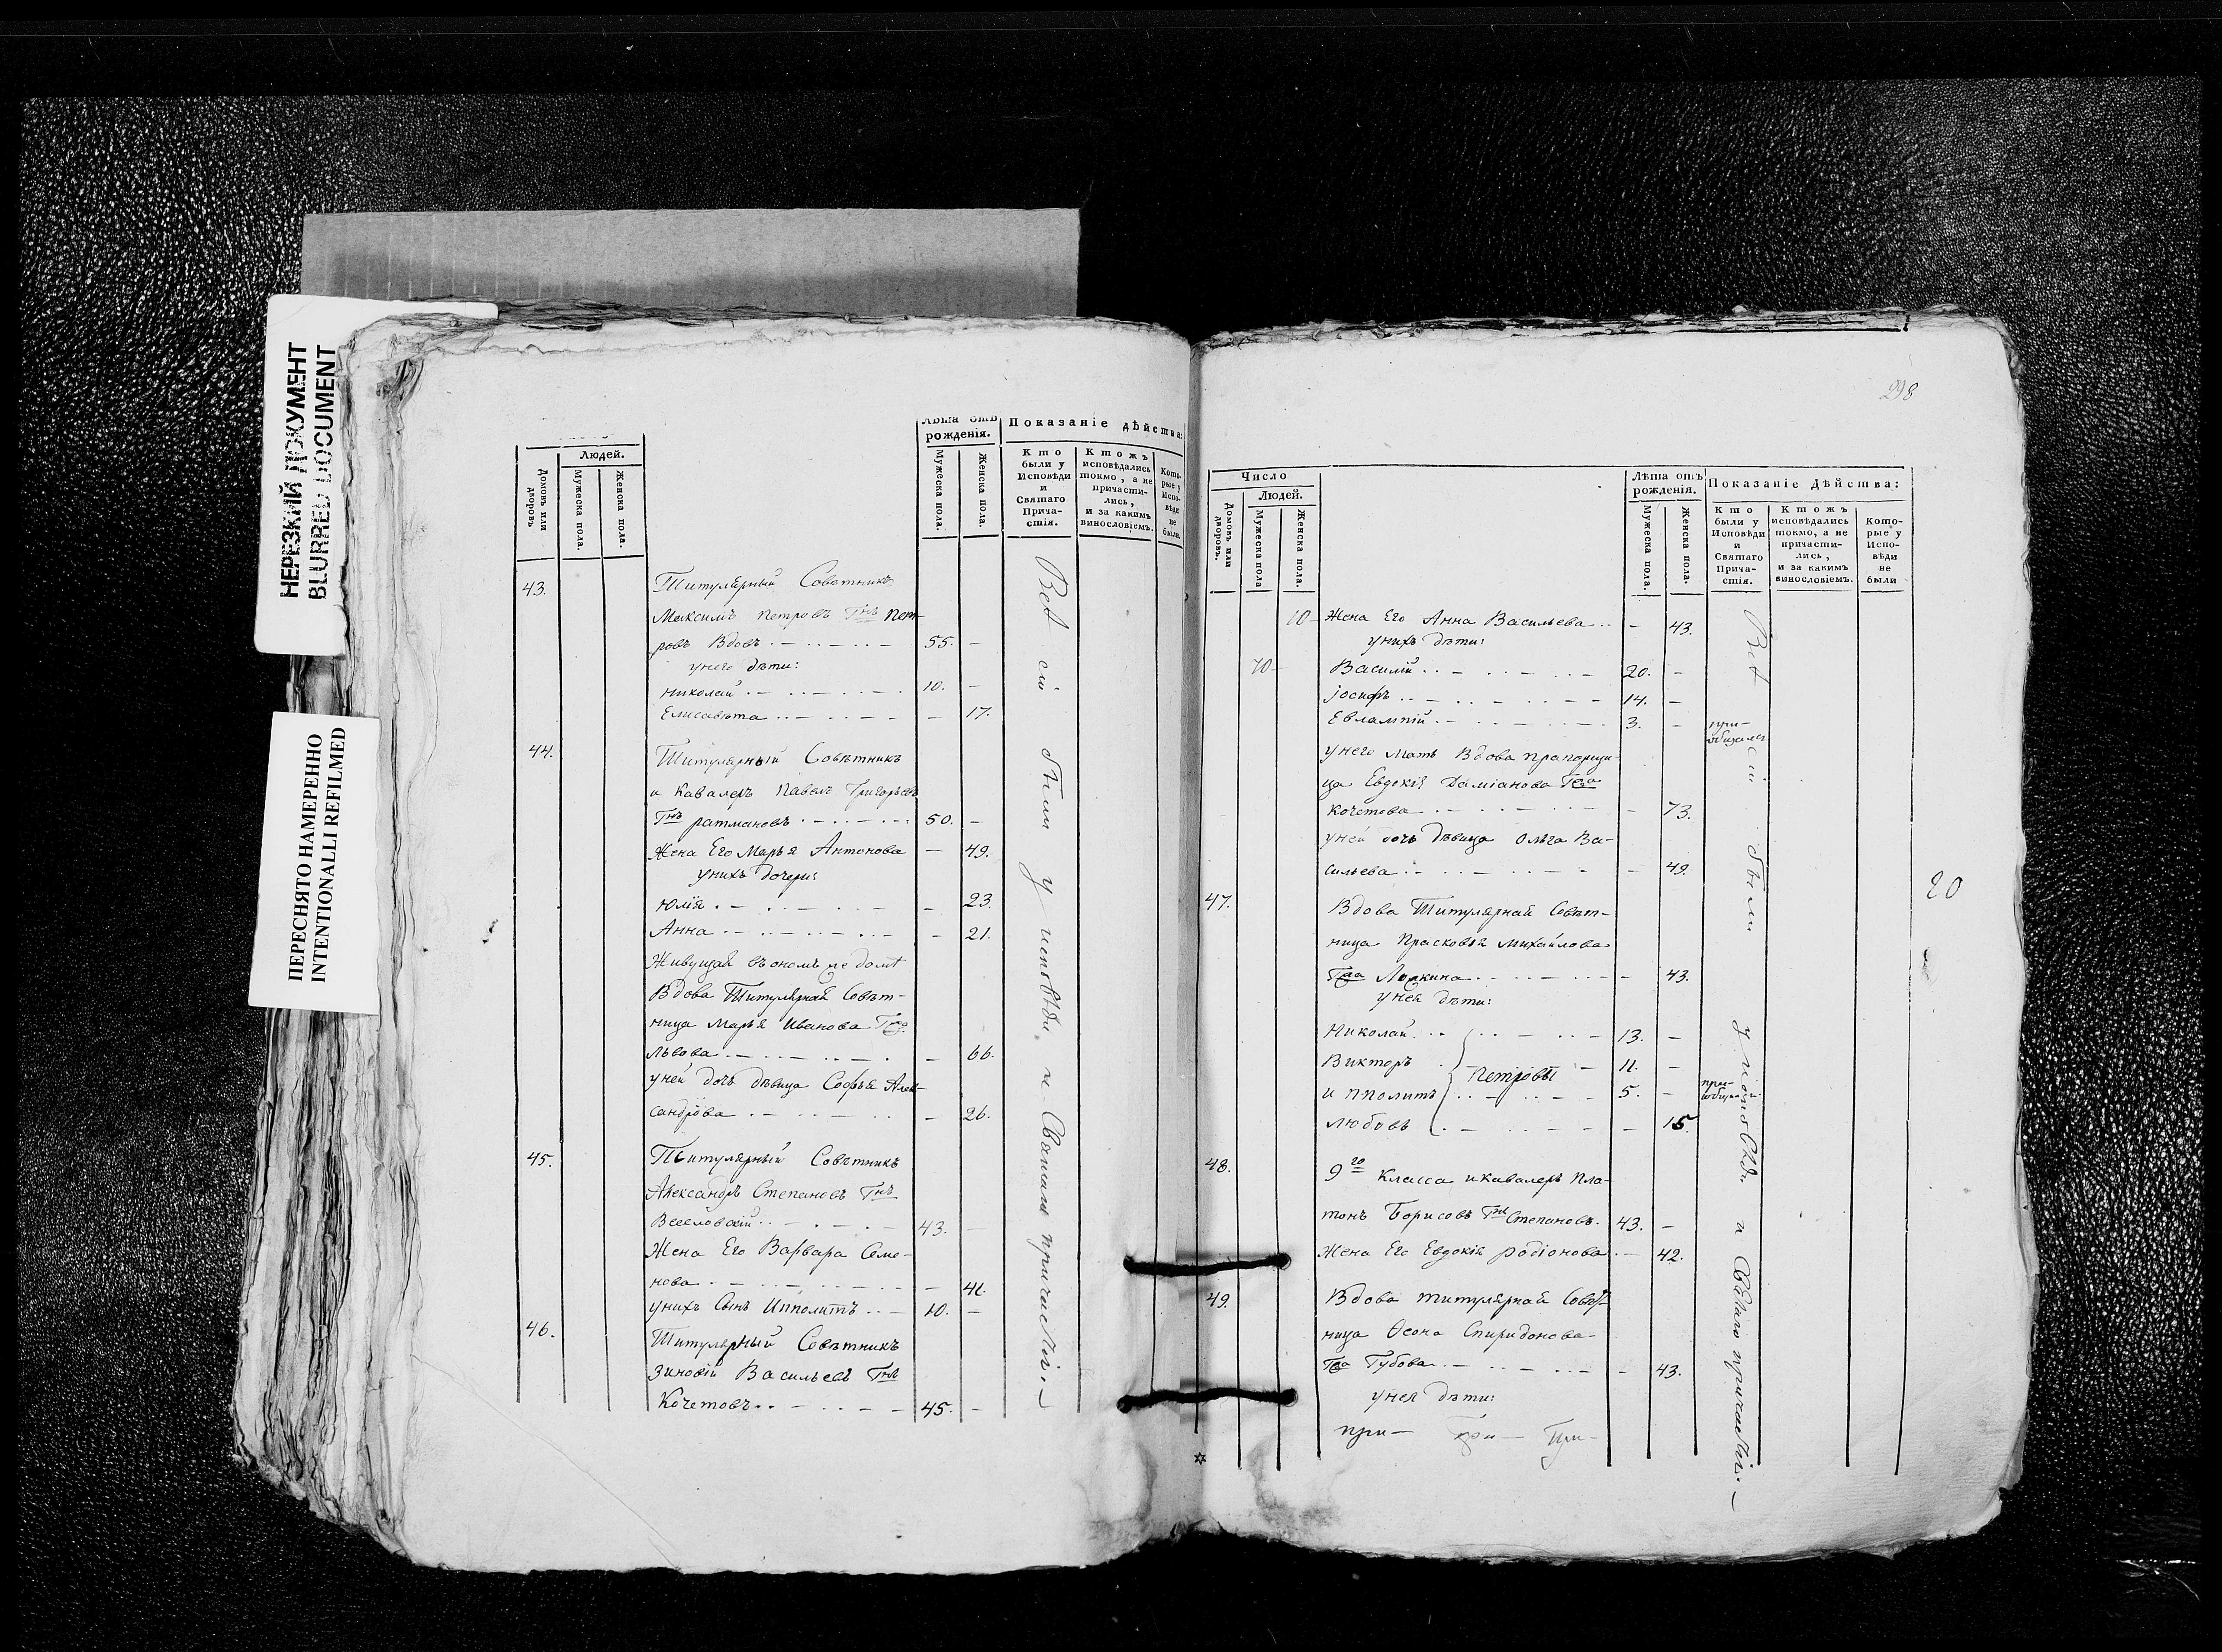 НЕРЕЗКИЙ ДОКУМЕНТ
BLURRED DOCUMENT
ПЕРЕСНЯТО НАМЕРЕННО
INTENTIONALLI REFILMED
Людей.
Домовъ или дворовъ
Мужеска пола.
Женска пола.
Лѣта отъ рожденія.
Мужеска пола.
Женска пола.
Показаніе дѣйства:
Кто были у Исповѣди и Святаго Прича-стія.
Ктожъ исповѣдались токмо, а не причасти-лись, и за какимъ винословіемъ.
Кото-рые у Испо-вѣди не были.
43. Титулярный Совѣтникъ
Максимъ Петровъ Гнъ Пет-
ровъ Вдовъ 55. -
у него дѣти:
Николай 10. -
Елисавѣта - 17.
44. Титулярный Совѣтникъ
и Кавалеръ Павелъ Григорьевъ
Гнъ ратмановъ 50. -
Жена Его Марья Антонова - 49.
у нихъ дочери:
Юлія - 23.
Анна - 21.
Живущая въ ономъ же домѣ
Вдова Титулярная Совѣт-
ница Марья Иванова Гжа
Львова - 66.
у ней дочь дѣвица Софья Алек-
сандрова - 26.
45. Титулярный Совѣтникъ
Александръ Степановъ Гнъ
Веселовскій 43. -
Жена Его Варвара Семе-
нова - 41.
у нихъ Сынъ Ипполитъ 10. -
46. Титулярный Совѣтникъ
Зиновій Васильевъ Гнъ
Кочетовъ 45. -
Всѣ сіи были у исповѣди и Святаго причастія.
298
Число
Людей.
Домовъ или дворовъ.
Мужеска пола
Женска пола.
Лѣта отъ рожденія.
Мужеска пола.
Женска пола.
Показаніе дѣйства:
Кто были у Исповѣди и Святаго Прича-стія.
Ктожъ исповѣдались токмо, а не причасти-лись, и за какимъ винословіемъ.
Кото-рые у Испо-вѣди не были
10 Жена Его Анна Васильева - 43.
у нихъ дѣти:
10 Василій 20. -
Іосифъ 14. -
Евлампій 3. -
у него мать Вдова прапорщи-
ца Евдокія Даміанова Гжа
Кочетова - 73.
у ней дочь дѣвица Ольга Ва-
сильева - 49.
47. Вдова Титулярная Совѣт-
ница Прасковья Михайлова
Гжа - 43.
у нея дѣти:
Николай 13. -
Викторъ 11. -
Петровы
Ипполитъ 5. -
Любовь - 15.
48. 9го класса и кавалеръ Пла-
тонъ Борисовъ Гнъ Степановъ. 43. -
Жена Его Евдокія Родіонова - 42.
49. Вдова титулярная Совѣт-
ница Спиридонова
Гжа Губова - 43.
у нея дѣти:
при- при- При-
Всѣ сіи были у исповѣди и Святаго причастія.
20